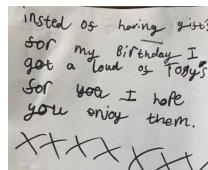 insted of having gist
for my Birthday I
got a loud of Tog's
for you I hope
you onjoy them.
XXXX XXXX